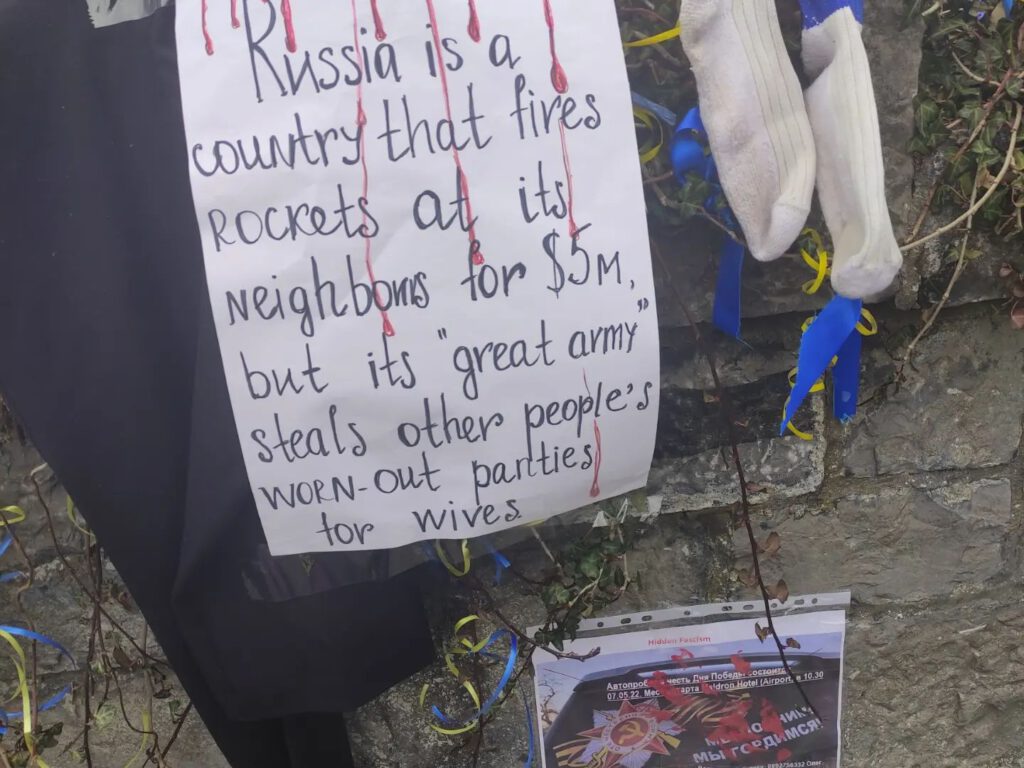 Russia is a
country that fires
rockets at its
neighbors for $5M,
but its "great army"
steals other people's
worn-out panties
for wives
Hidden Fascism
Автопробег честь Дня Победы состоится
07.05.22. Место старта Maldron Hotel (Airport, в 10.30
МЫ ГОРДИМСЯ!